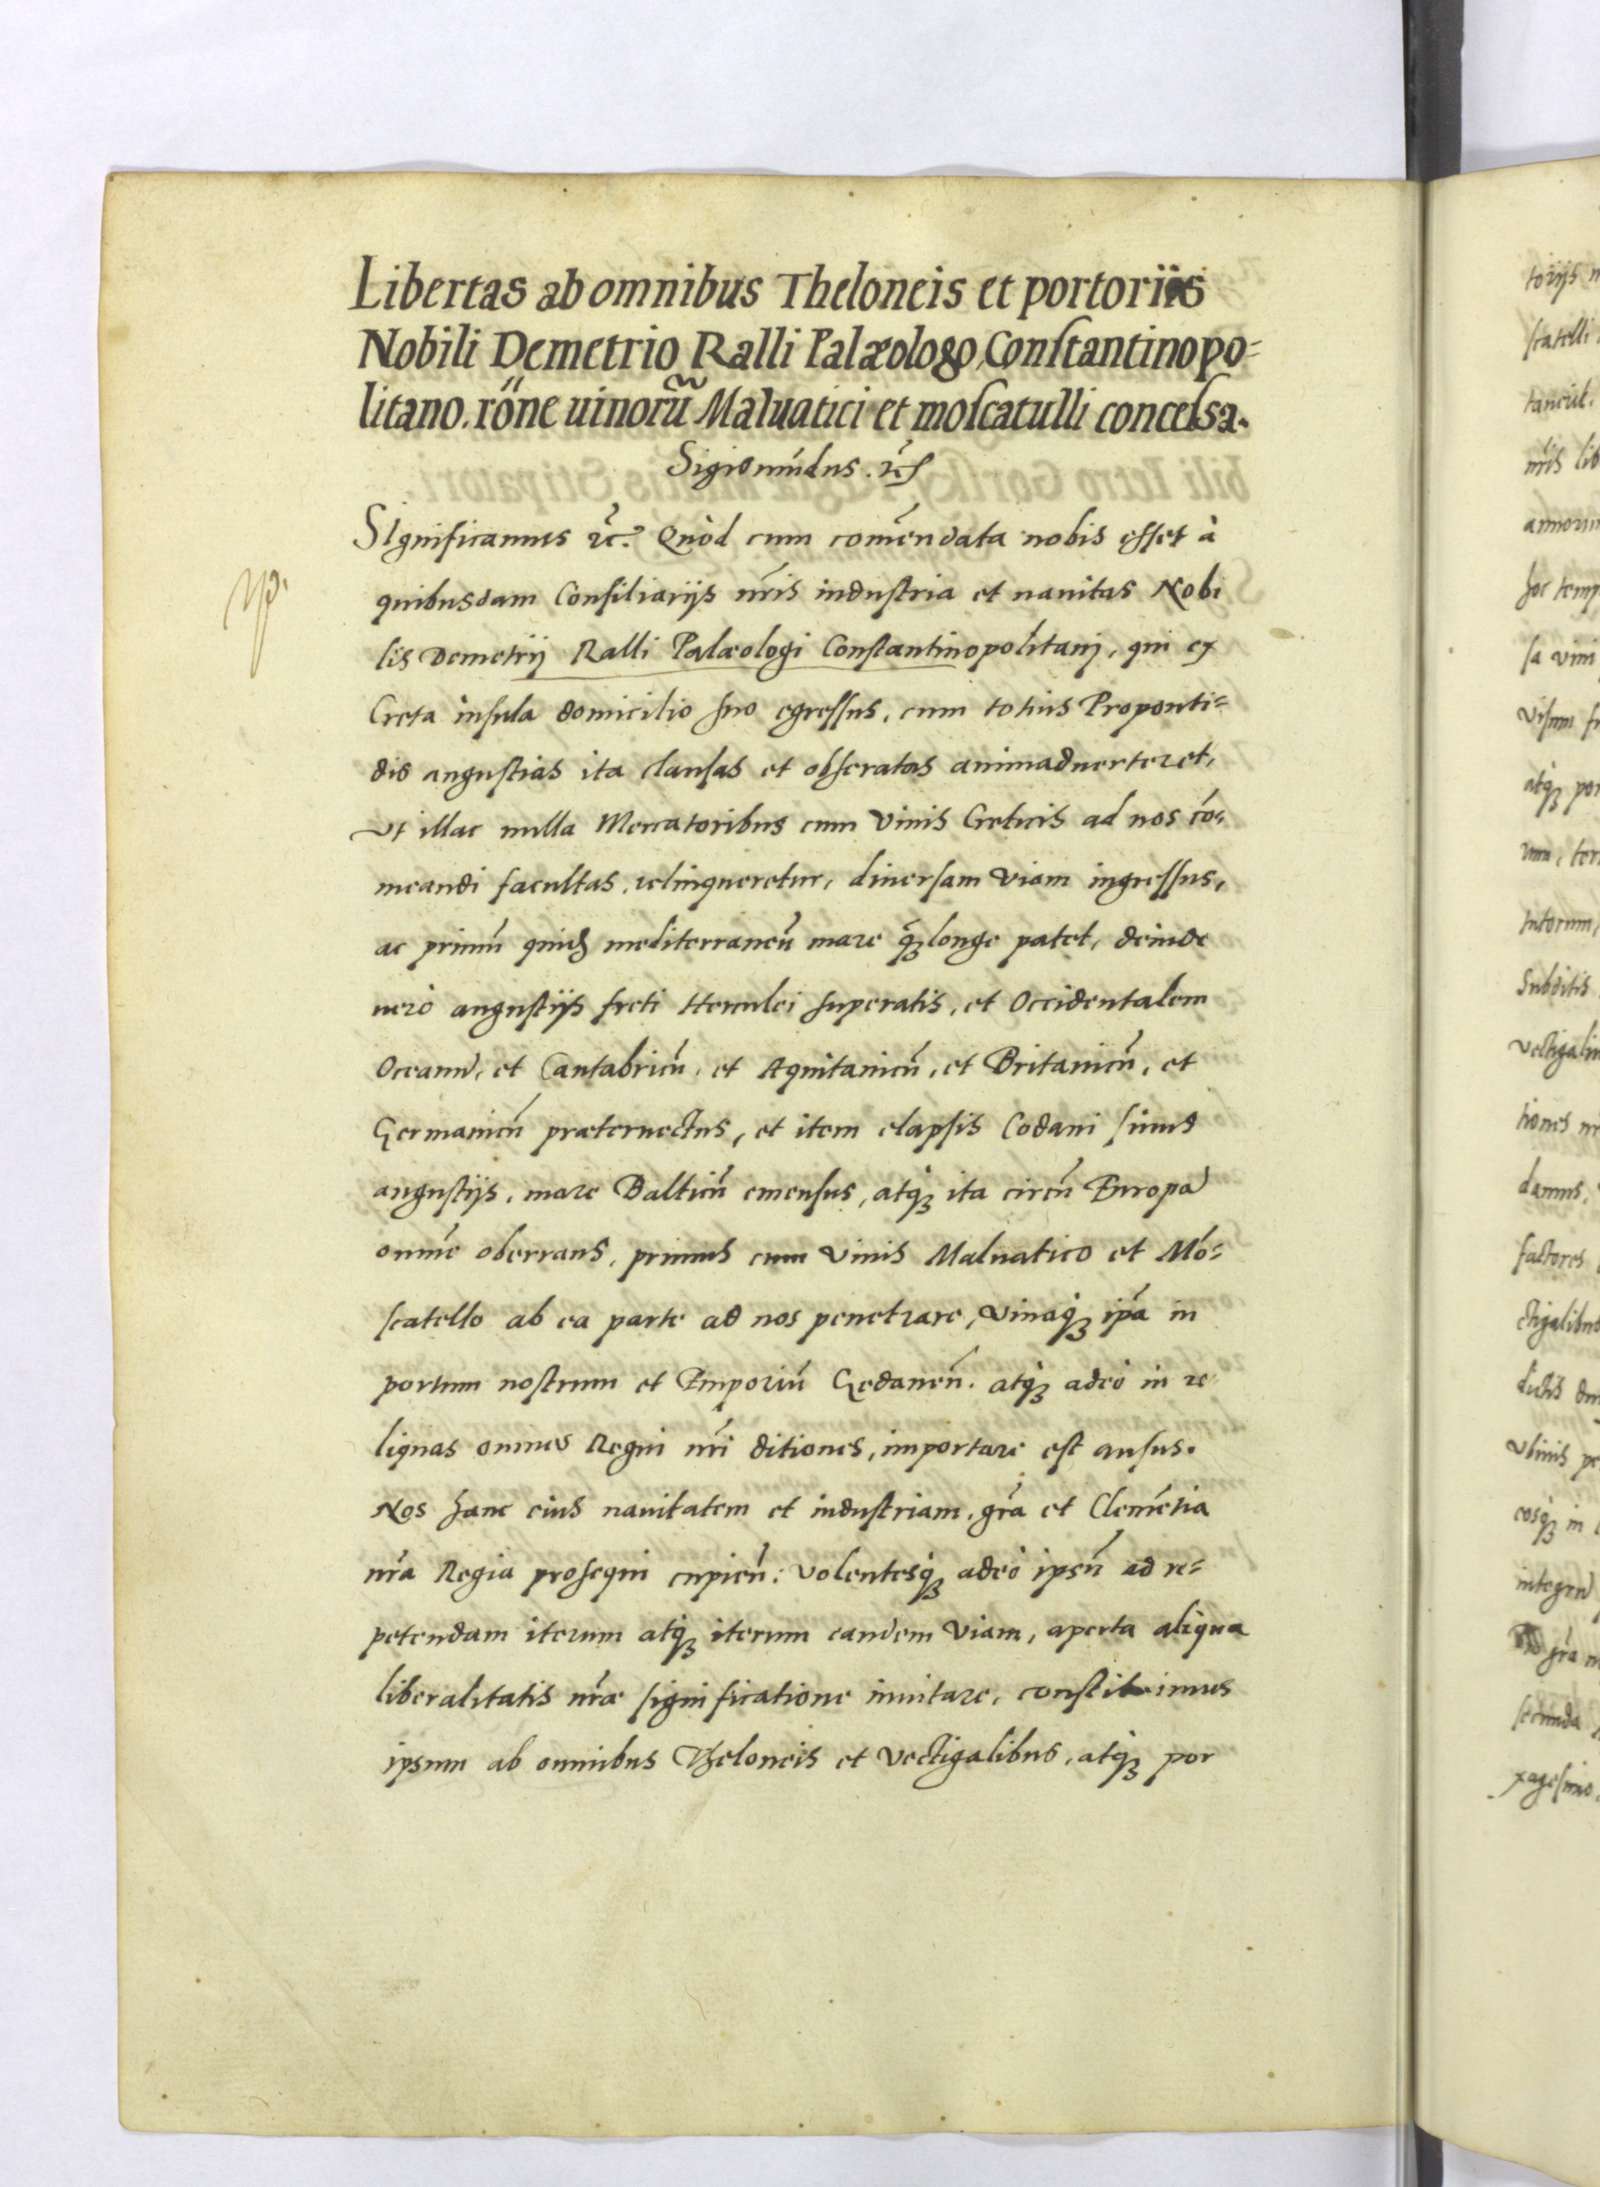 Libertas ab omnibus Theloneis et portoriis
Nobili Demetrio Ralli Palæologo, Constantinopo=
litano. rõne uinorũ Maluatici et moscatulli concessa.
Sigismũdus. &c̃
SIgnificamus &c̃. Quòd cum com̃endata nobis esset à
quibusdam Consiliarijs nr̃is industria et nauitas Nobi
lis Demetrij Ralli Palæologi Constantinopolitani, qui ex
Creta insula domicilio suo egressus, cum totius Proponti=
dis angustias ita clausas et obseratas animaduerteret,
Vt illac nulla Mercatoribus cum Vinis Creticis ad nos cõ=
meandi facultas relinqueretur, diuersam Viam ingressus,
ac primũ quidẽ mediterraneũ mare q̃ longe patet, deinde
uerò angustijs freti Herculei superatis, et Occidentalem
Oceanũ, et Cantabricũ, et Aquitanicũ, et Britanicũ, et
Germanicũ præteruectus, et item elapsis Codani sinus
angustijs, mare Balticũ emensus, atq̃ ita circũ Europã
omnẽ oberrans, primus cum Vinis Maluatico et Mo=
scatello ab ea parte ad nos penetrare, Vinaq̃ ip̃a in
portum nostrum et Emporiũ Gedaneñ. atq̃ adeò in re
liquas omnes Regni nr̃i ditiones, importare est ausus.
Nos hanc eius nauitatem et industriam, gr̃a et Clemẽtia
nr̃a Regia prosequi cupieñ: Volentesq̃ adeò ipsũ ad re=
petendam iterum atq̃ iterum eandem Viam, aperta aliqua
liberalitatis nr̃æ significatione inuitare, constituimus
ipsum ab omnibus Theloneis et Vectigalibus, atq̃ por
torijs
scatelli
tancũ.
nr̃is lib
annorum
hoc temp
sa vini
Visum
atq̃ por
Subditis
Vectigalib
tiones
damus,
factores
ctigalibus
dictis
Vbiuis pe
eosq̃ in
integrũ
gr̃a
secunda
xagesimo